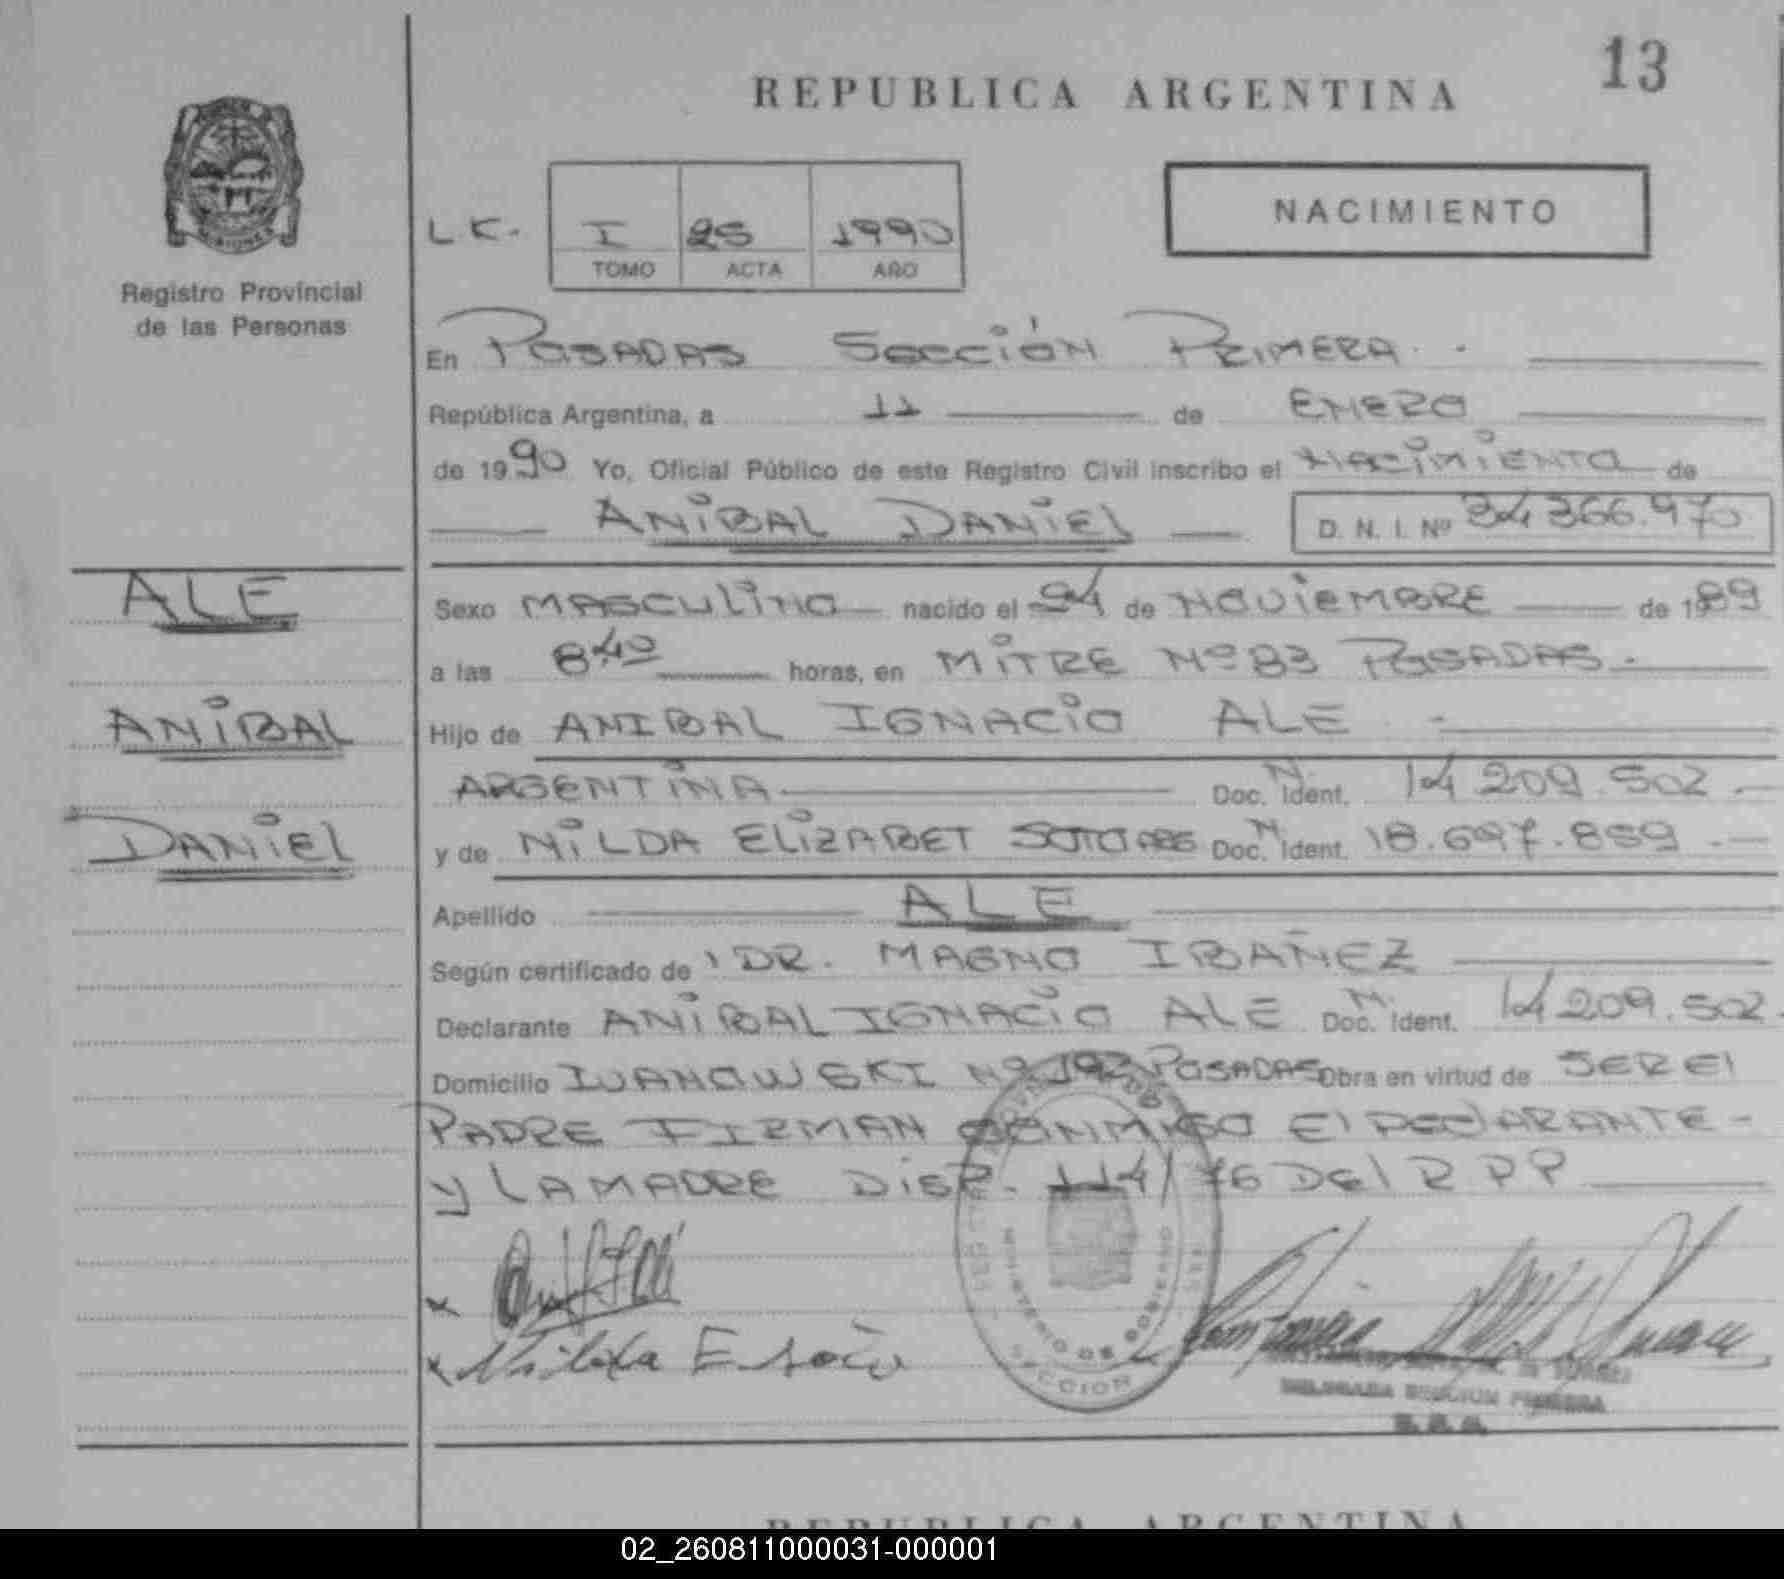 13
REPUBLICA ARGENTINA
L K. I 25 1990
TOMO ACTA AÑO
NACIMIENTO
Registro Provincial
de las Personas
En POSADAS SECCIÓN PRIMERA.
República Argentina, a 11 de ENERO
de 1990 Yo, Oficial Público de este Registro Civil inscribo el NACIMIENTO de
ANIBAL DANIEL D. N. I. Nº 34 366.970
ALE
ANIBAL
DANIEL
Sexo MASCULINO nacido el 24 de NOVIEMBRE de 1989
a las 8 40 horas, en MITRE Nº 83 POSADAS.
Hijo de ANIBAL IGNACIO ALE
ARGENTINA Doc. N. Ident. 14 209.502.
y de NILDA ELIZABET Doc. N. Ident. 18.697.859.
Apellido ALE
Según certificado de DR. MAGNO IBAÑEZ
Declarante ANIBAL IGNACIO ALE Doc. N. Ident. 14 209.502.
Domicilio IVANOWSKI Nº 192 POSADAS Obra en virtud de SER EL
PADRE FIRMAN CONMIGO EL DECLARANTE -
y LA MADRE DISP. 114/76 DEL R P P
x
x Nilda E
MINISTERIO DE GOBIERNO
SECCION
DELEGADA SECCION PRIMERA
REPUBLICA ARGENTINA
02_260811000031-000001